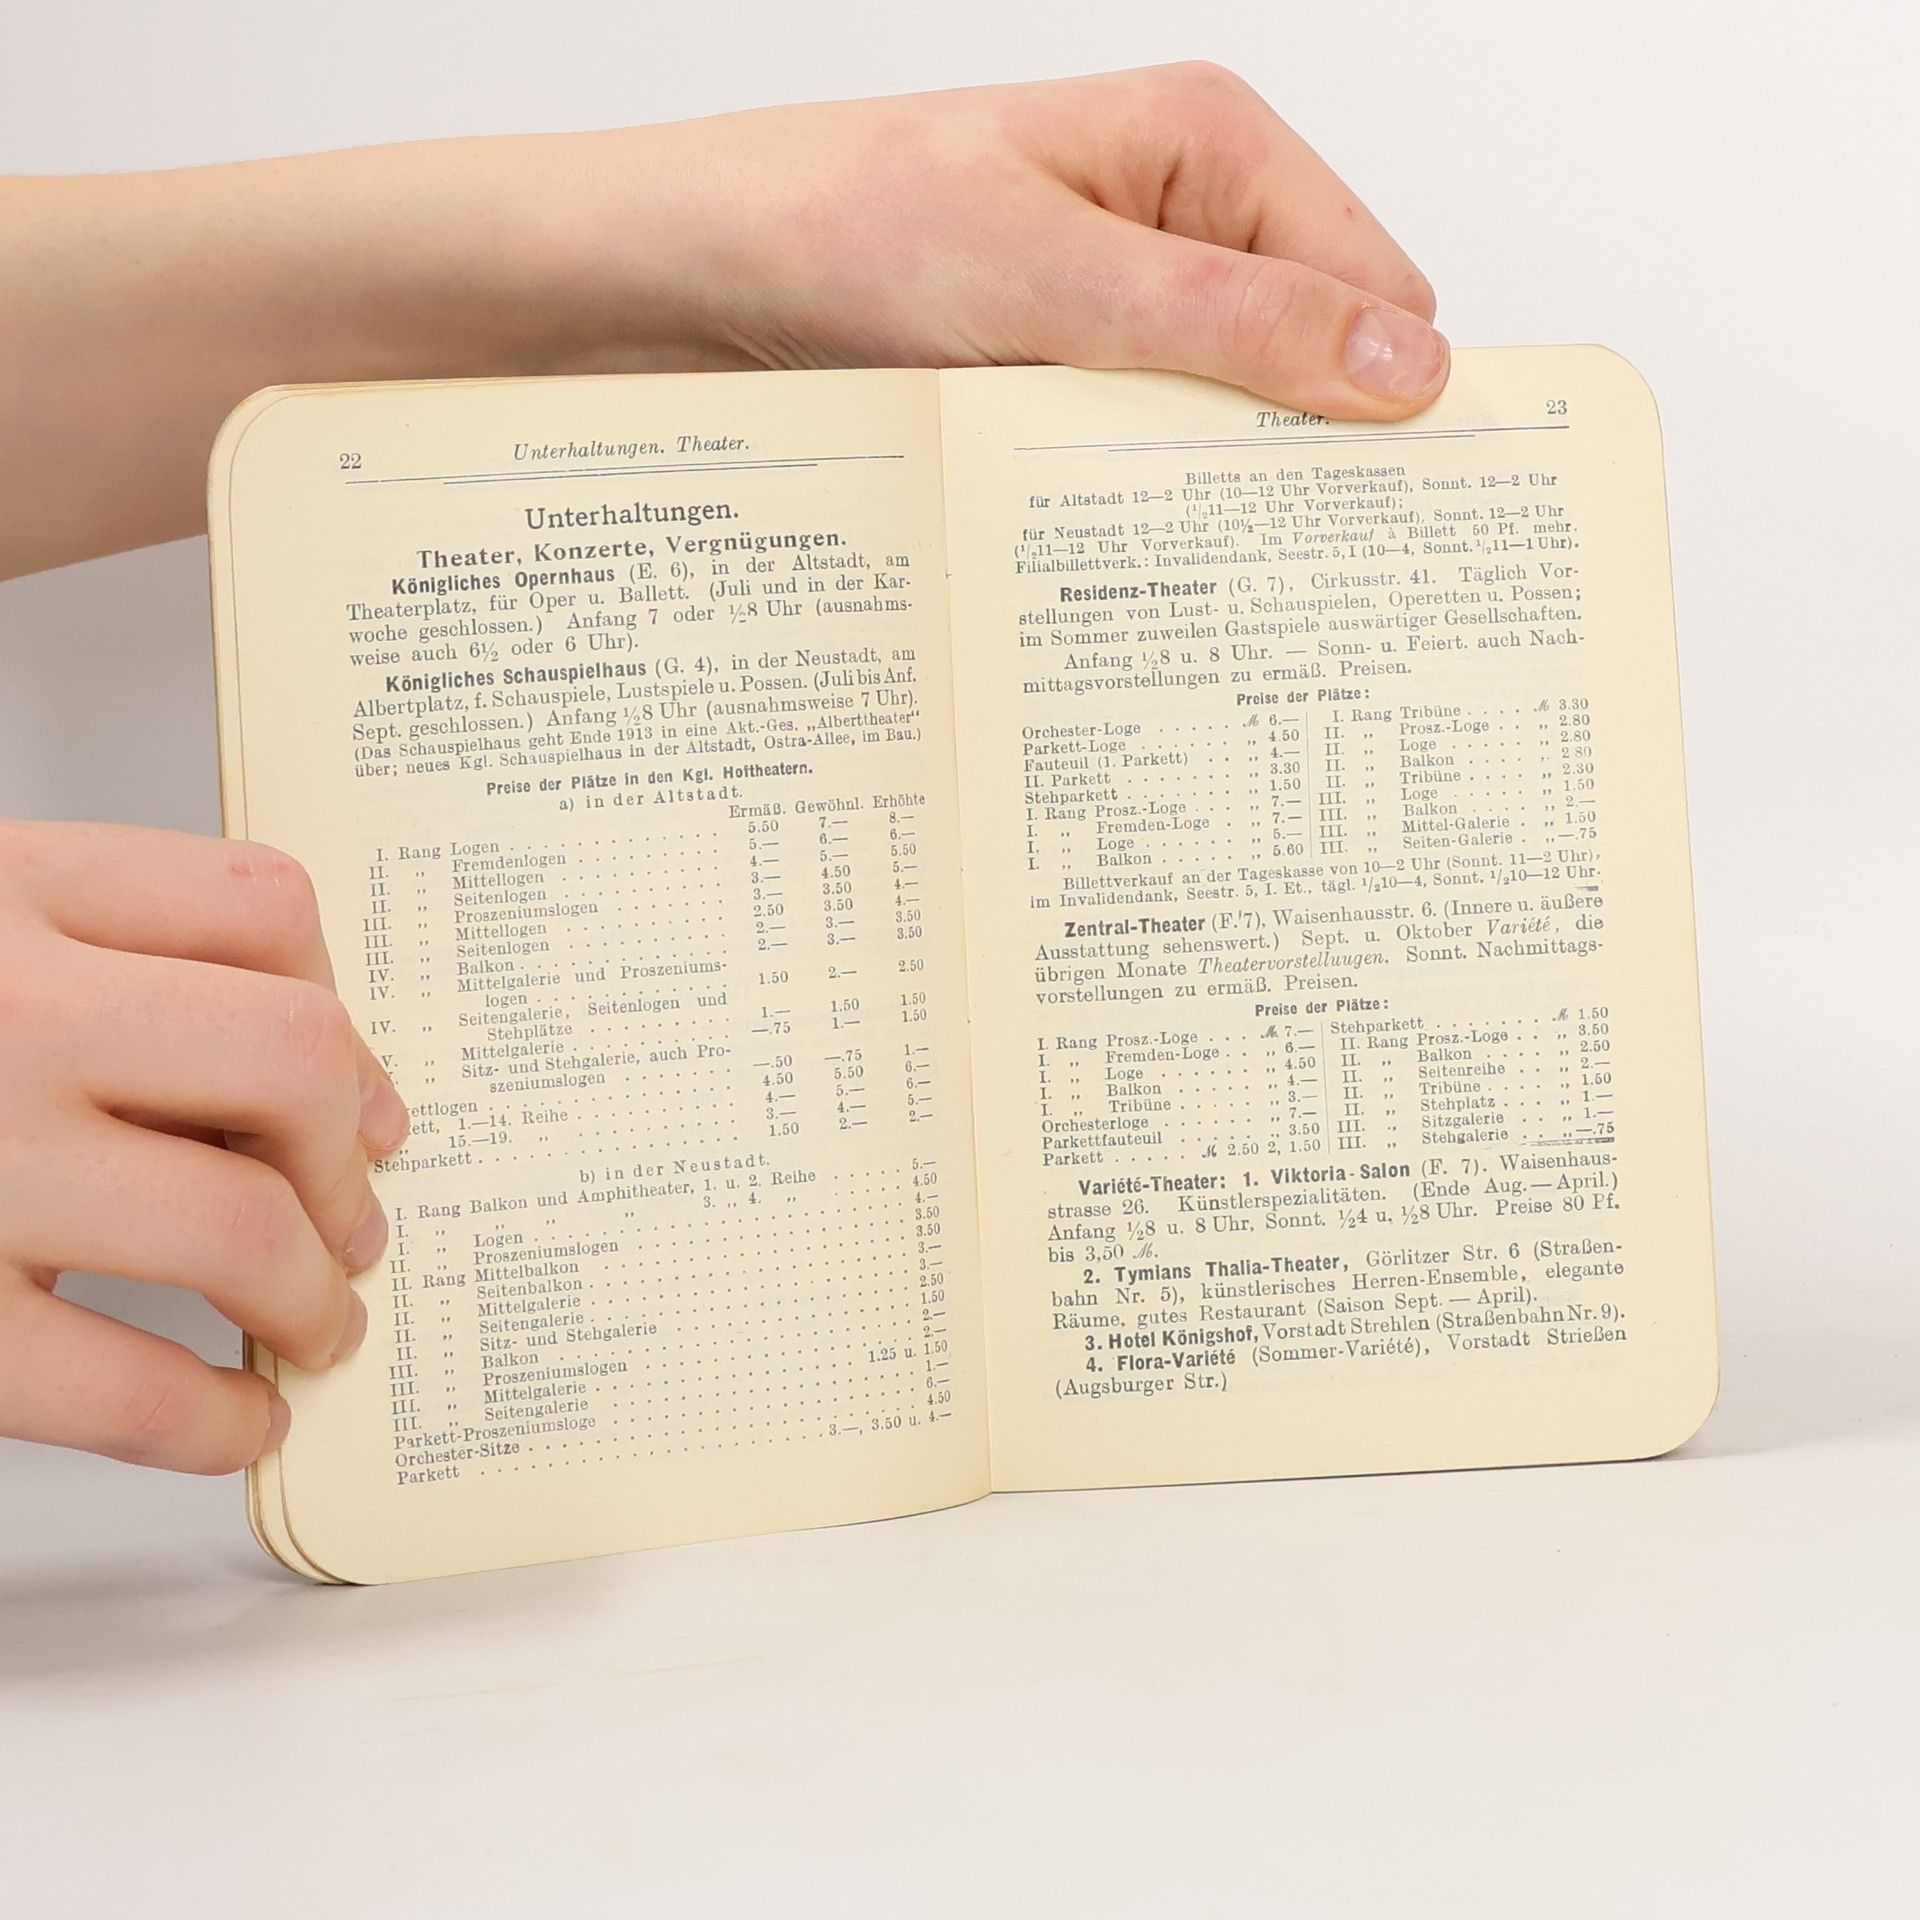 22
Unterhaltungen. Theater.
Unterhaltungen.
Theater, Konzerte, Vergnügungen.
Königliches Opernhaus (E. 6), in der Altstadt, am
Theaterplatz, für Oper u. Ballett. (Juli und in der Kar-
woche geschlossen.) Anfang 7 oder ½8 Uhr (ausnahms-
weise auch 6½ oder 6 Uhr).
Königliches Schauspielhaus (G. 4), in der Neustadt, am
Albertplatz, f. Schauspiele, Lustspiele u. Possen. (Juli bis Anf.
Sept. geschlossen.) Anfang ½8 Uhr (ausnahmsweise 7 Uhr).
(Das Schauspielhaus geht Ende 1913 in eine Akt.-Ges. „Alberttheater"
über; neues Kgl. Schauspielhaus in der Altstadt, Ostra-Allee, im Bau.)
Preise der Plätze in den Kgl. Hoftheatern.
a) in der Altstadt.
Ermäß. Gewöhnl. Erhöhte
I. Rang Logen . . . 5.50 7.— 8.—
II. „ Fremdenlogen . . . 5.— 6.— 6.—
II. „ Mittellogen . . . 4.— 5.— 5.50
II. „ Seitenlogen . . . 3.— 4.50 5.—
II. „ Proszeniumslogen . . . 3.— 3.50 4.—
III. „ Mittellogen . . . 2.50 3.50 4.—
III. „ Seitenlogen . . . 2.— 3.— 3.50
III. „ Balkon . . . 2.— 3.— 3.50
IV. „ Mittelgalerie und Proszeniums-
logen . . . 1.50 2.— 2.50
IV. „ Seitengalerie, Seitenlogen und
Stehplätze . . . 1.— 1.50 1.50
V. „ Mittelgalerie . . . —.75 1.— 1.50
„ Sitz- und Stehgalerie, auch Pro-
szeniumslogen . . . —.50 —.75 1.—
ettlogen . . . 4.50 5.50 6.—
ett, 1.—14. Reihe . . . 4.— 5.— 6.—
15.—19. „ . . . 3.— 4.— 5.—
Stehparkett . . . 1.50 2.— 2.—
b) in der Neustadt.
I. Rang Balkon und Amphitheater, 1. u. 2. Reihe . . . 5.—
I. „ „ „ „ 3. „ 4. „ . . . 4.50
I. „ Logen . . . 4.—
II. „ Proszeniumslogen . . . 3.50
II. Rang Mittelbalkon . . . 3.50
II. „ Seitenbalkon . . . 3.—
II. „ Mittelgalerie . . . 3.—
II. „ Seitengalerie . . . 2.50
II. „ Sitz- und Stehgalerie . . . 1.50
III. „ Balkon . . . 2.—
III. „ Proszeniumslogen . . . 2.—
III. „ Mittelgalerie . . . 1.25 u. 1.50
III. „ Seitengalerie . . . 1.—
Parkett-Proszeniumsloge . . . 6.—
Orchester-Sitze . . . 4.50
Parkett . . . 3.—, 3.50 u. 4.—
Theater.
23
Billetts an den Tageskassen
für Altstadt 12—2 Uhr (10—12 Uhr Vorverkauf), Sonnt. 12—2 Uhr
(½11—12 Uhr Vorverkauf);
für Neustadt 12—2 Uhr (10½—12 Uhr Vorverkauf), Sonnt. 12—2 Uhr
(½11—12 Uhr Vorverkauf). Im Vorverkauf à Billett 50 Pf. mehr.
Filialbillettverk.: Invalidendank, Seestr. 5, I (10—4, Sonnt. ½11—1 Uhr).
Residenz-Theater (G. 7), Cirkusstr. 41. Täglich Vor-
stellungen von Lust- u. Schauspielen, Operetten u. Possen;
im Sommer zuweilen Gastspiele auswärtiger Gesellschaften.
Anfang ½8 u. 8 Uhr. — Sonn- u. Feiert. auch Nach-
mittagsvorstellungen zu ermäß. Preisen.
Preise der Plätze:
Orchester-Loge . . . ℳ 6.—
Parkett-Loge . . . „ 4.50
Fauteuil (1. Parkett) . . „ 4.—
II. Parkett . . . „ 3.30
Stehparkett . . . „ 1.50
I. Rang Prosz.-Loge . . . „ 7.—
I. „ Fremden-Loge . „ 7.—
I. „ Loge . . . „ 5.—
I. „ Balkon . . . „ 5.60
I. Rang Tribüne . . . ℳ 3.30
II. „ Prosz.-Loge . . „ 2.80
II. „ Loge . . . „ 2.80
II. „ Balkon . . . „ 2.80
II. „ Tribüne . . . „ 2.30
III. „ Loge . . . „ 1.50
III. „ Balkon . . . „ 2.—
III. „ Mittel-Galerie . „ 1.50
III. „ Seiten-Galerie . „ —.75
Billettverkauf an der Tageskasse von 10—2 Uhr (Sonnt. 11—2 Uhr),
im Invalidendank, Seestr. 5, I. Et., tägl. ½10—4, Sonnt. ½10—12 Uhr.
Zentral-Theater (F. 7), Waisenhausstr. 6. (Innere u. äußere
Ausstattung sehenswert.) Sept. u. Oktober Variété, die
übrigen Monate Theatervorstelluugen. Sonnt. Nachmittags-
vorstellungen zu ermäß. Preisen.
Preise der Plätze:
I. Rang Prosz.-Loge . . . ℳ 7.—
I. „ Fremden-Loge . . „ 6.—
I. „ Loge . . . „ 4.50
I. „ Balkon . . . „ 4.—
I. „ Tribüne . . . „ 3.—
Orchesterloge . . . „ 7.—
Parkettfauteuil . . . „ 3.50
Parkett . . . ℳ 2.50 2, 1.50
Stehparkett . . . ℳ 1.50
II. Rang Prosz.-Loge . . „ 3.50
II. „ Balkon . . . „ 2.50
II. „ Seitenreihe . . „ 2.—
II. „ Tribüne . . . „ 1.50
II. „ Stehplatz . . . „ 1.—
III. „ Sitzgalerie . . „ 1.—
III. „ Stehgalerie . . „ —.75
Variété-Theater: 1. Viktoria-Salon (F. 7). Waisenhaus-
strasse 26. Künstlerspezialitäten. (Ende Aug. — April.)
Anfang ½8 u. 8 Uhr, Sonnt. ½4 u. ½8 Uhr. Preise 80 Pf.
bis 3,50 ℳ.
2. Tymians Thalia-Theater, Görlitzer Str. 6 (Straßen-
bahn Nr. 5), künstlerisches Herren-Ensemble, elegante
Räume, gutes Restaurant (Saison Sept. — April).
3. Hotel Königshof, Vorstadt Strehlen (Straßenbahn Nr. 9).
4. Flora-Variété (Sommer-Variété), Vorstadt Strießen
(Augsburger Str.)